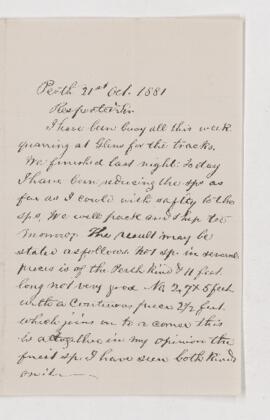 Perth 21st Oct. 1881
Respected Sir
I have been busy all this week
quarring at Glens for the tracks.
We finished last night. To day
I have been reducing the sps as
far as I could with safty to the
sps. We will pack and ship to
morrow. The result may be
stated as follows. No 1 sp. in several
pieces is of the Perth Kind & 11 feet
long not very good No 2, 7 x 5 feet
with a continous piece 2 1/2 feet
which joins on to a corner this
is altogether in my opinion the
finest sp. I have seen both Kinds